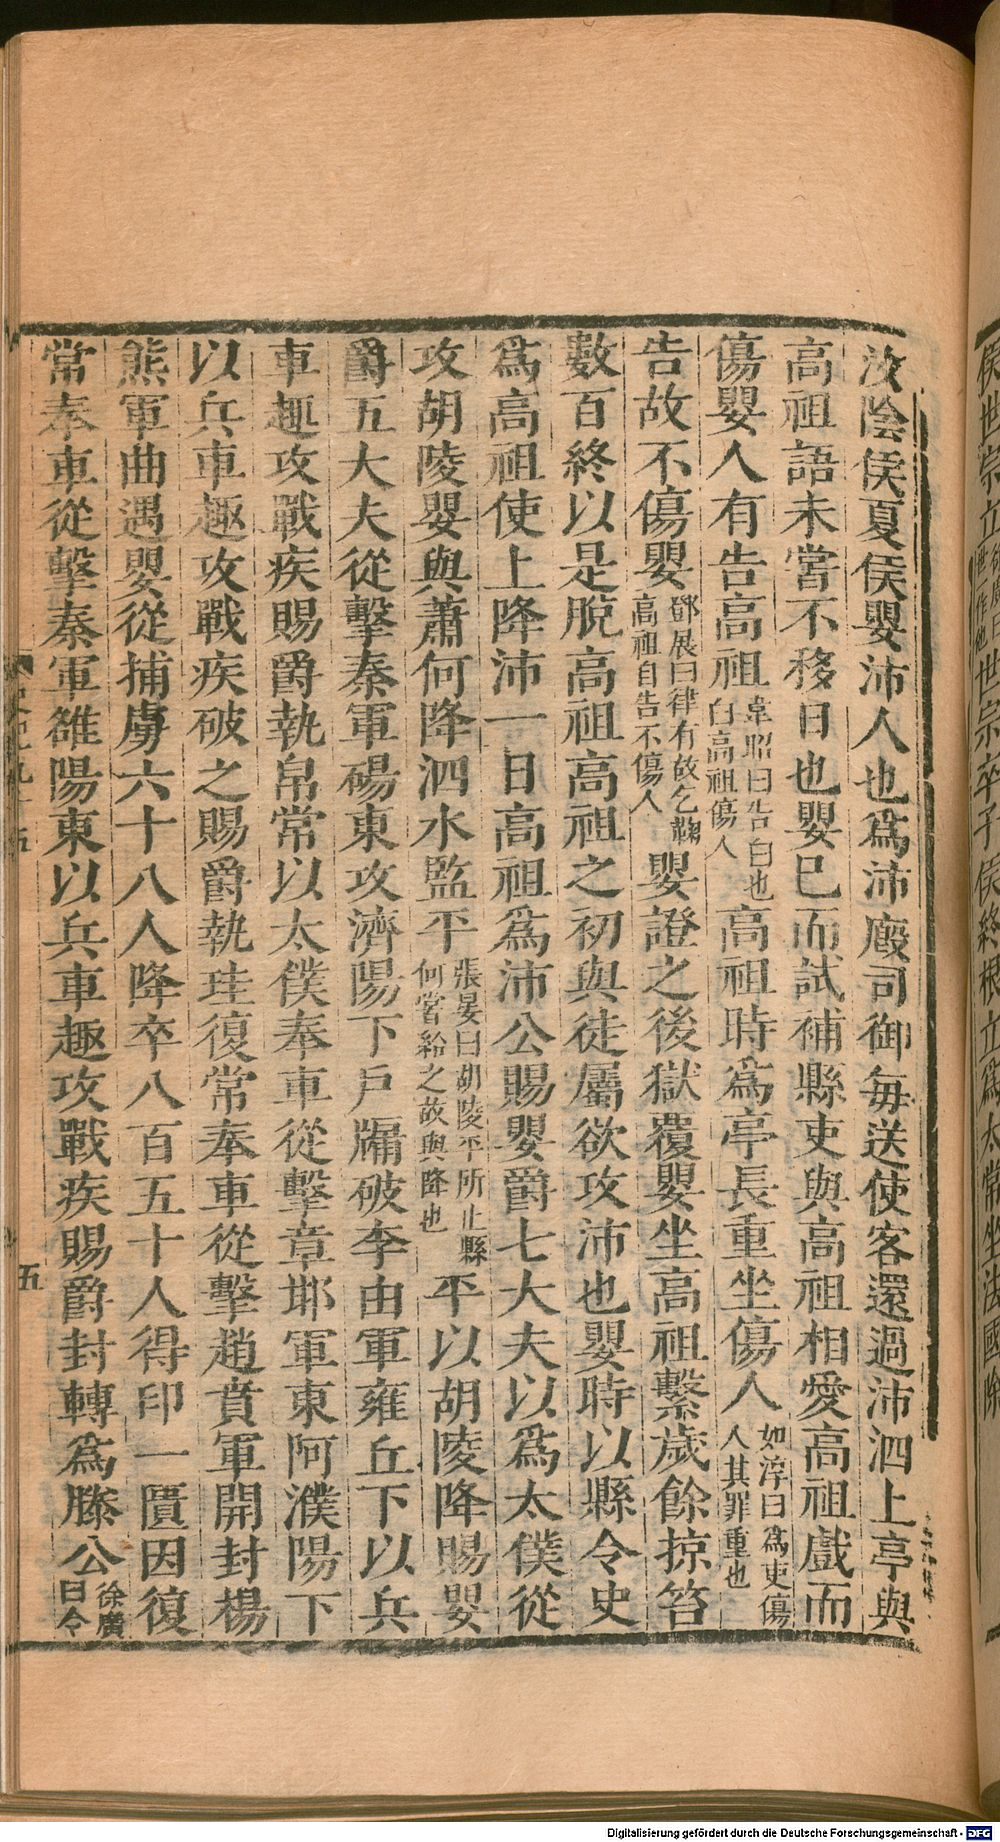 汝陰侯夏侯嬰沛人也爲沛廄司御每送使客還過沛泗上亭與
高祖語未嘗不移日也嬰已而試補縣吏與高祖相愛高祖戲而
傷嬰人有告高祖韋昭曰告白也白高祖傷人高祖時爲亭長重坐傷人如淳曰爲吏傷人其罪重也
告故不傷嬰鄧展曰律有故乞鞫高祖自告不傷人嬰證之後獄覆嬰坐高祖繫歲餘掠笞
數百終以是脫高祖高祖之初與徒屬欲攻沛也嬰時以縣令史
爲高祖使上降沛一日高祖爲沛公賜嬰爵七大夫以爲太僕從
攻胡陵嬰與蕭何降泗水監平張晏曰胡陵平所止縣何嘗給之故與降也平以胡陵降賜嬰
爵五大夫從擊秦軍碭東攻濟陽下戶牖破李由軍雍丘下以兵
車趣攻戰疾賜爵執帛常以太僕奉車從擊章邯軍東阿濮陽下
以兵車趣攻戰疾破之賜爵執珪復常奉車從擊趙賁軍開封楊
熊軍曲遇嬰從捕虜六十八人降卒八百五十人得印一匱因復
常奉車從擊秦軍雒陽東以兵車趣攻戰疾賜爵封轉爲滕公徐廣曰令
五
侯世宗立世一作他世宗卒子侯終根立爲太常坐法國除
Digitalisierung gefördert durch die Deutsche Forschungsgemeinschaft - DFG